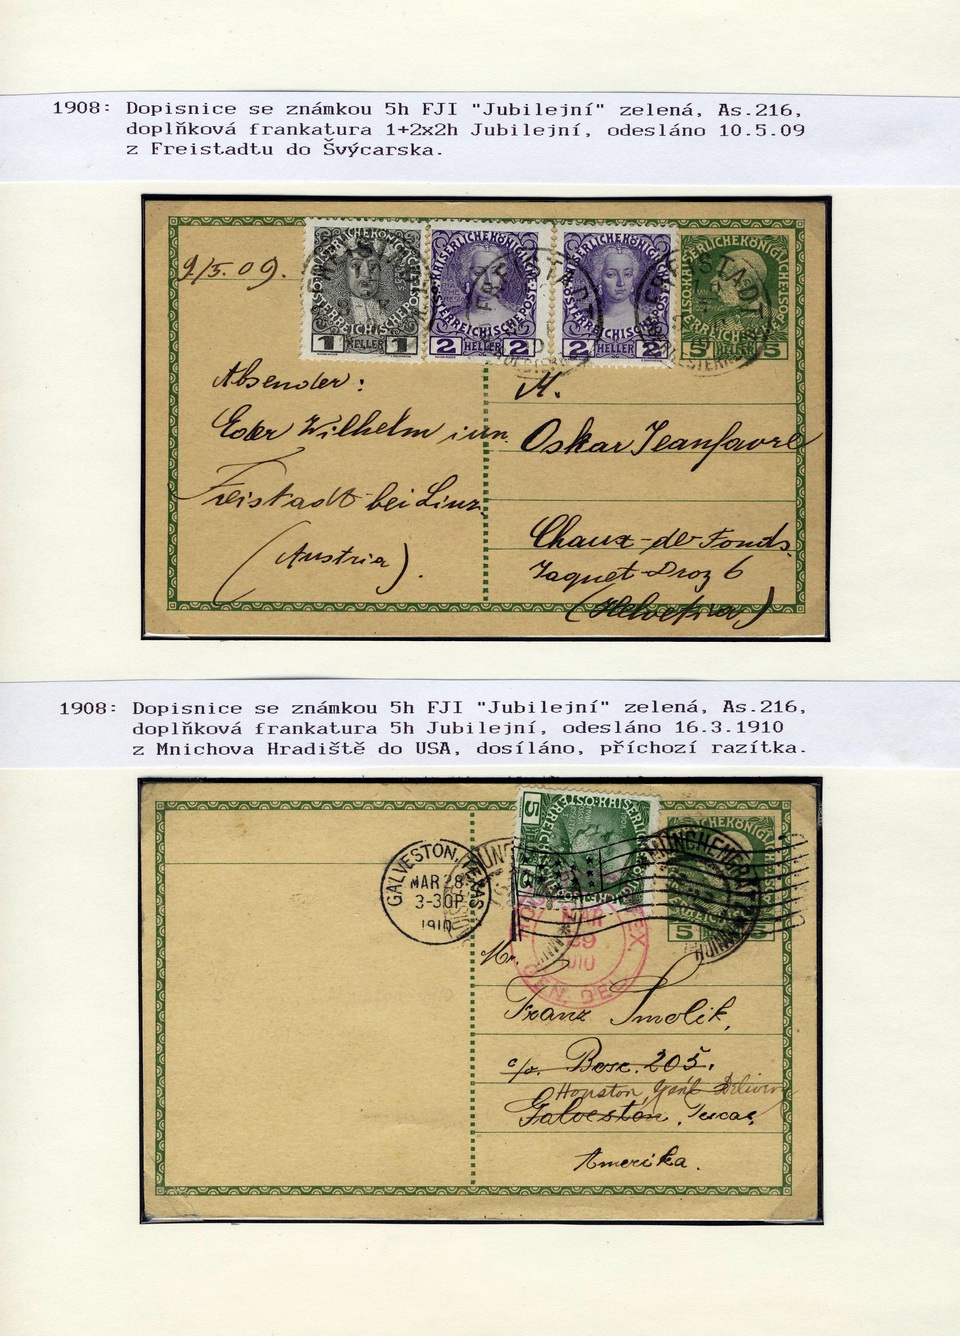 1908: Dopisnice se známkou 5h FJI "Jubilejní" zelená, As.216,
doplňková frankatura 1+2x2h Jubilejní, odesláno 10.5.09
z Freistadtu do Švýcarska.
9/5.09.
1 HELLER 1
2 HELLER 2
2 HELLER 2
5 HELLER 5
Absender:
Eder Wilhelm iun.
Freistadt bei Linz
(Austria).
M.
Oskar Jeanfavre
Chaux-de-Fonds.
Jaquet-Droz 6
(Helvetia)
1908: Dopisnice se známkou 5h FJI "Jubilejní" zelená, As.216,
doplňková frankatura 5h Jubilejní, odesláno 16.3.1910
z Mnichova Hradiště do USA, dosíláno, příchozí razítka.
GALVESTON, TEXAS
MAR 28
3-30P
1910
5
MÜNCHENGRÄTZ
TEX.
MAR
29
1910
GEN. DEL.
5 5
Mr.
Franz Smolik,
c/o. Box. 205.
Houston, Genl Delivery
Galveston, Texas,
Amerika.